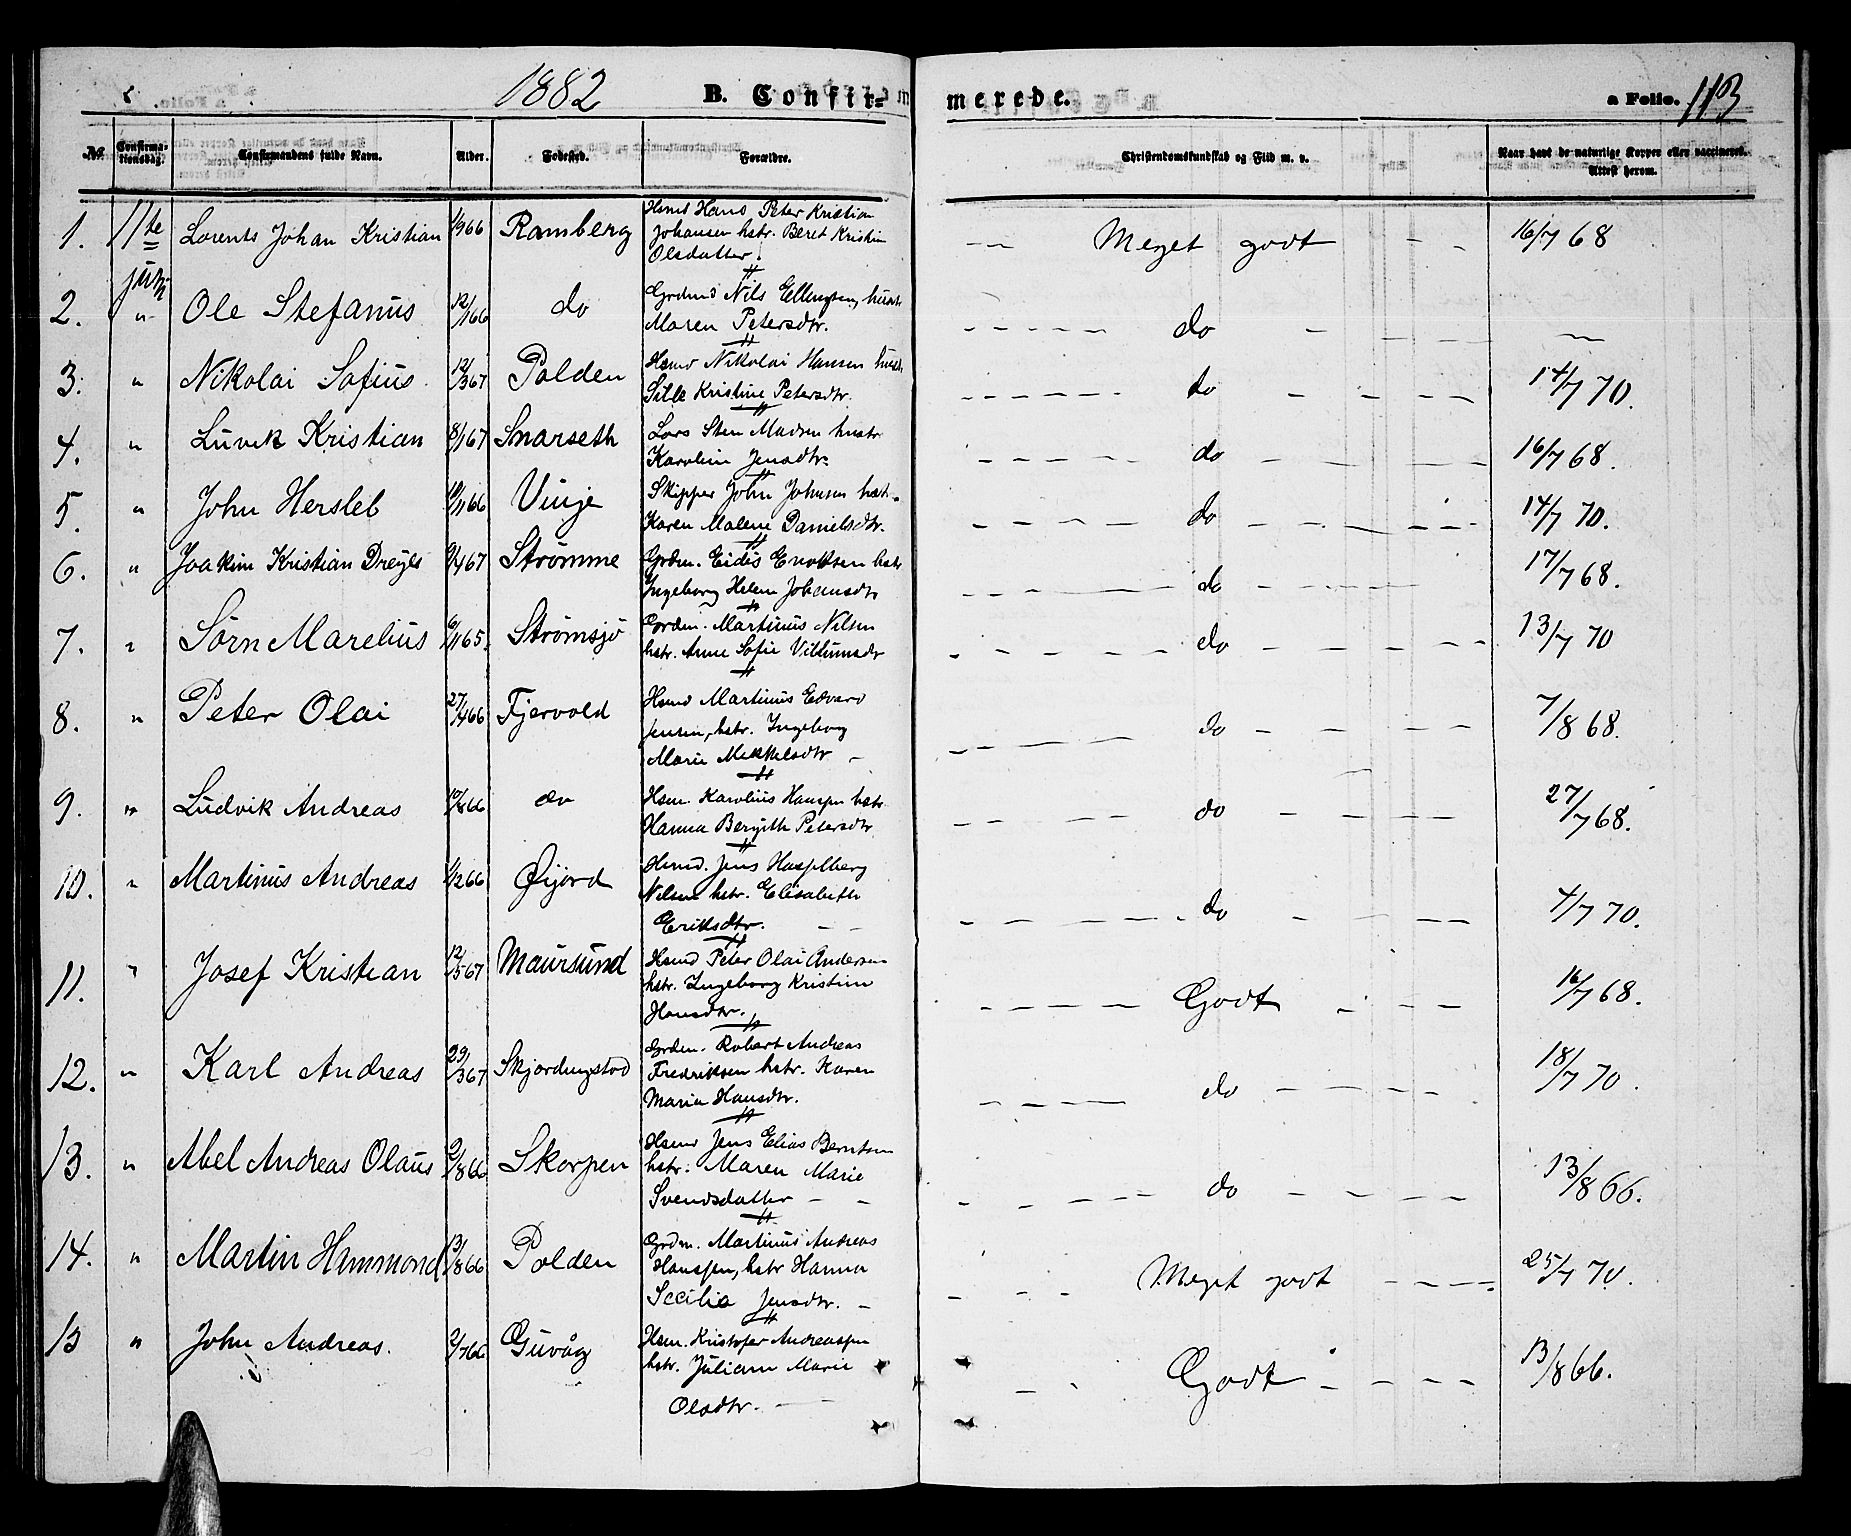 1882 B. Confir- merede. a Folio. 113
No. Confirma-tionsdag. Confirmandens fulde Navn. Alder. Fødested. Forældre. Christendomskundskab og Flid m. v. Naar havt de naturlige Kopper eller vaccineret. Attest herom.
1. 11te Lorents Johan Kristian 1/9 66 Ramberg Hsmd Hans Peter Kristian
Johansen hstr. Beret Kristin Meget godt 16/7 68
Olsdatter.
juni
2. " Ole Stefanus 12/1 66 do Grdmd Nils Ellingsen, hustr
Maren Petersdtr. do —
3. " Nikolai Sofius 12/3 67 Polden Hsmd Nikolai Hansen hustr.
Sille Kristine Petersdtr. do 14/7 70.
4. " Luvik Kristian 8/1 67 Snarseth Lars Sten Madsen hustr
Karolin Jensdtr. do 16/7 68.
5. " John Hersleb 10/11 66 Vinje Skipper John Johnsen hstr.
Karen Malene Danielsdtr. do 14/7 70.
6. " Joakim Kristian Dreyer 9/4 67 Strømme Grdm. Eidis Enoksen hstr
Ingeborg Helene Johansdtr do 17/7 68.
7. " Sørn Marelius 6/11 65. Strømsjø Gordm. Martinus Nilsen
hstr. Anne Sofie Villumsdtr do 13/7 70
8. " Peter Olai 27/4 66 Fjervold Hsmd Martinus Edvard
Jensen, hstr. Ingeborg do 7/8 68.
Marie Mekkelsdtr
9. " Ludvik Andreas 10/8 66 do Hsm. Karolius Hansen hstr
Hanna Bergith Petersdtr do 27/7 68.
10. " Martinus Andreas 1/2 66 Øijord Hsmd. Jens Hasselberg
Nilsen hstr. Elisabeth do 4/7 70.
Eriksdtr.
11. " Josef Kristian 12/5 67 Maursund Hsmd Peter Olai Andersen
hstr. Ingeborg Kristine Godt 16/7 68.
Hansdtr.
12. " Karl Andreas 29/3 67 Skjordingstad Grdm. Robert Andreas
Fredriksen hstr. Karen do 18/7 70.
Maria Hansdtr.
13. " Abel Andreas Olaus 2/8 66 Skorpen Hsmd Jens Elias Berntsen
hstr. Maren Marie do 13/8 66.
Svendsdatter
14. " Martin Hammond 13/8 66 Polden Grdm. Martinus Andreas
Hanssen, hstr Hanna Meget godt 25/7 70.
Secilia Jensdtr.
15 " John Andreas. 2/7 66 Guvåg Hsm. Kristofer Andreassen
hstr. Juliann Marie Godt 13/8 66.
Olsdtr.